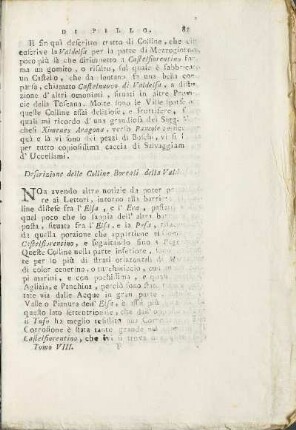 DI PILLO. 81
di fin quì descritto tratto di Colline, che
coscrive la Valdelsa per la parte di Mezzogiorno,
poco più là che dirimpetto a Castelfiorentino
ma un gomito, o risalto, sul quale è fabbricato
un Castello, che da lontano fa una bella
parsa, chiamato Castelnuovo di Valdelsa, a
zione d' altri omonimi, situati in altre
cie della Toscana. Molte sono le Ville sparse
queste Colline assai deliziose, e fruttifere,
quali mi ricordo d' una grandiosa dei Sigg.
chesi Ximenes Aragona, verso
quà e là vi sono dei pezzi di Boschi, vi si
per tutto copiosissima caccia di Salvaggiumi
d' Uccellami.
Descrizione delle Colline Boreali della
NOn avendo altre notizie da poter
re ai Lettori, intorno alla
line distese fra l' Elsa, e l' Era,
quel poco che io sappia dell' altra
posta, situata fra l' Elsa, e la Pesa,
da quella porzione che appartiene
Castelfiorentino, e seguitando fino a
Queste Colline nella parte inferiore,
te per lo più di strati orizontali di
di color cenerino, o turchiniccio, con
pi marini, e con pochissima,
Agliaia, e Panchina, perciò sono state
tate via dalle Acque in gran parte
Valle o Pianura dell' Elsa, è assai
questo lato settentrionale, che
il Tufo ha meglio resistito
Corrosione è stata tanto grande
Castelfiorentino, che
Tomo VIII. F